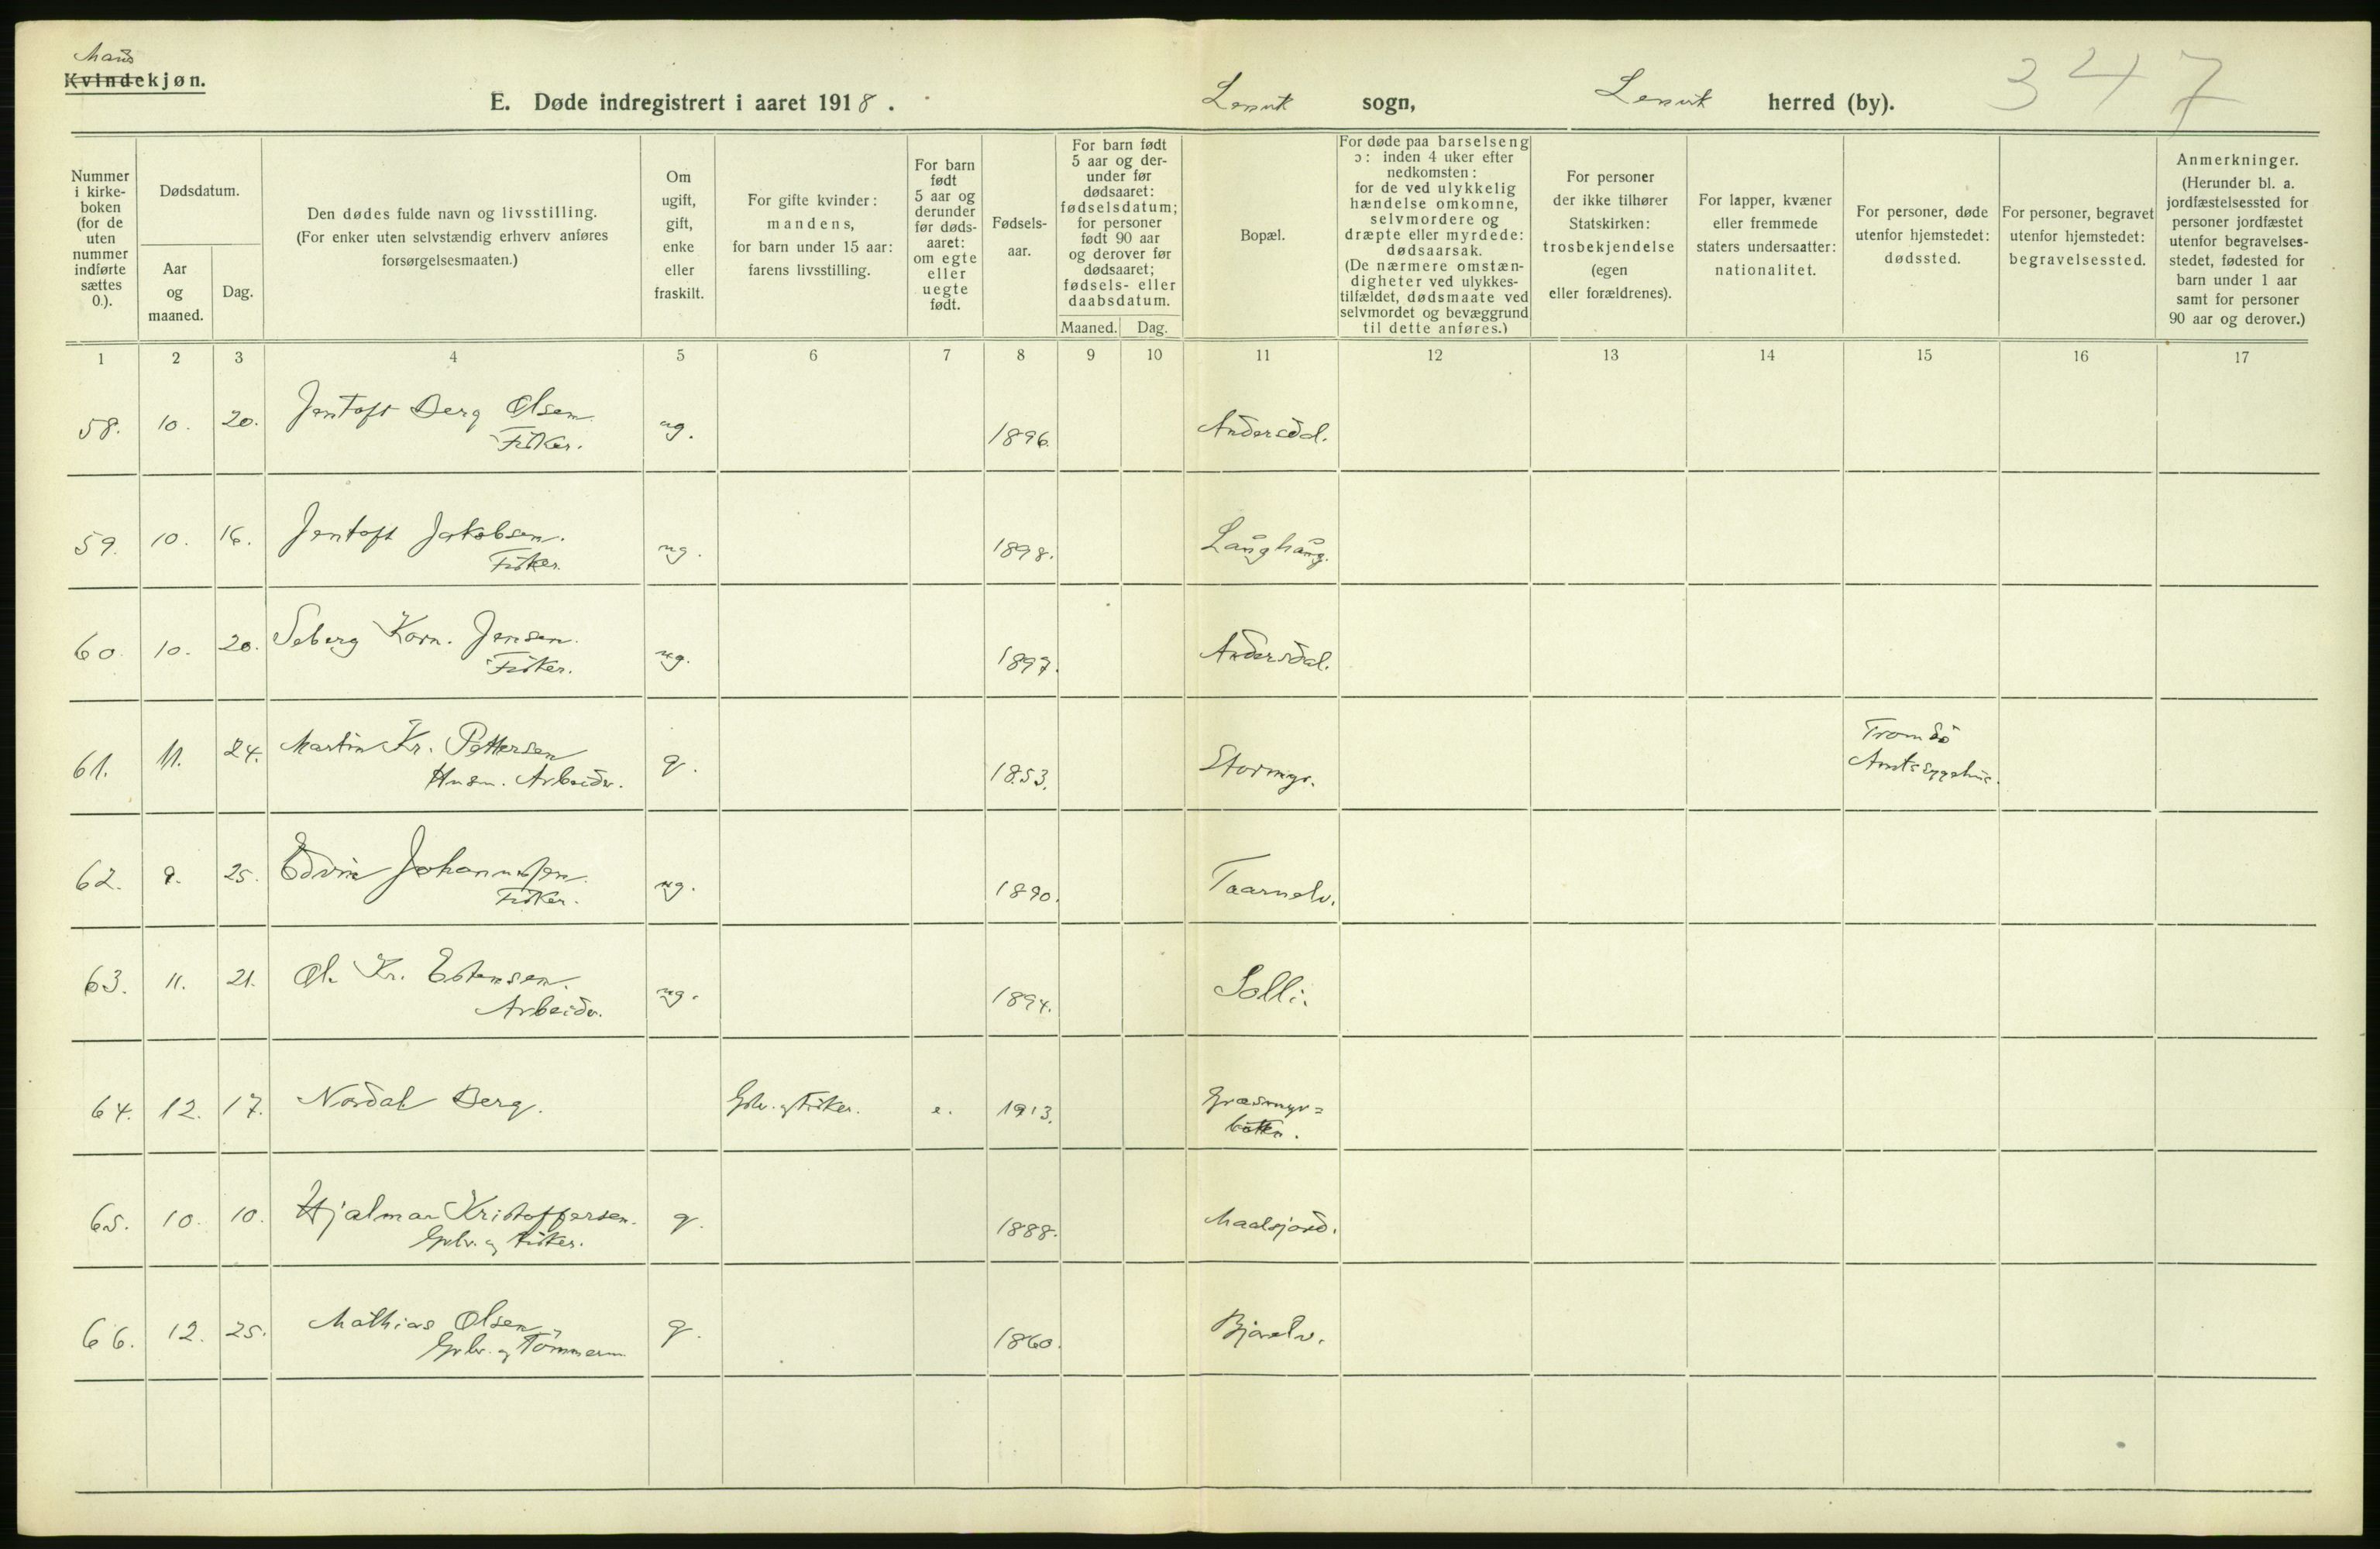 Mands
Kvindekjøn.
E. Døde indregistrert i aaret 1918.
Lenvik sogn,
Lenvik herred (by).
347
Nummer
i kirke-
boken
(for de
uten
nummer
indførte
sættes
0.).
Dødsdatum.
Aar
og
maaned.
Dag.
Den dødes fulde navn og livsstilling.
(For enker uten selvstændig erhverv anføres
forsørgelsesmaaten.)
Om
ugift,
gift,
enke
eller
fraskilt.
For gifte kvinder:
mandens,
for barn under 15 aar:
farens livsstilling.
For barn
født
5 aar og
derunder
før døds-
aaret:
om egte
eller
uegte
født.
Fødsels-
aar.
For barn født
5 aar og der-
under før
dødsaaret:
fødselsdatum;
for personer
født 90 aar
og derover før
dødsaaret;
fødsels- eller
daabsdatum.
Maaned. Dag.
Bopæl.
For døde paa barselseng
ɔ: inden 4 uker efter
nedkomsten:
for de ved ulykkelig
hændelse omkomne,
selvmordere og
dræpte eller myrdede:
dødsaarsak.
(De nærmere omstæn-
digheter ved ulykkes-
tilfældet, dødsmaate ved
selvmordet og bevæggrund
til dette anføres.)
For personer
der ikke tilhører
Statskirken:
trosbekjendelse
(egen
eller forældrenes).
For lapper, kvæner
eller fremmede
staters undersaatter:
nationalitet.
For personer, døde
utenfor hjemstedet:
dødssted.
For personer, begravet
utenfor hjemstedet:
begravelsessted.
Anmerkninger.
(Herunder bl. a.
jordfæstelsessted for
personer jordfæstet
utenfor begravelses-
stedet, fødested for
barn under 1 aar
samt for personer
90 aar og derover.)
1 2 3 4 5 6 7 8 9 10 11 12 13 14 15 16 17
58. 10. 20. Jentoft Berg Olsen ug. 1896. Andersdal.
Fisker.
59. 10. 16. Jentoft Jakobsen. ug. 1898. Langhaug.
Fisker.
60. 10. 20. Seberg Korn. Jensen. ug. 1897. Andersdal.
Fisker.
61. 11. 24. Martin Kr. Pettersen g. 1853. Stormyr. Tromsö
Husm. Arbeider. Amtssygehus.
62. 9. 25. Edvin Johannessen. ug. 1890. Taarnelv.
Fisker.
63. 11. 21. Ol. Kr. Estensen. ug. 1894. Solli.
Arbeider.
64. 12. 17. Nordal Berg. Gbr. og Fisker. e. 1913. Græsmyr=
botten.
65. 10. 10. Hjalmar Kristoffersen. g. 1888. Maalsjord.
Gbr. og Fisker.
66. 12. 25. Mathias Olsen g. 1860. Bjorelv.
Gbr. og Tömmerm.